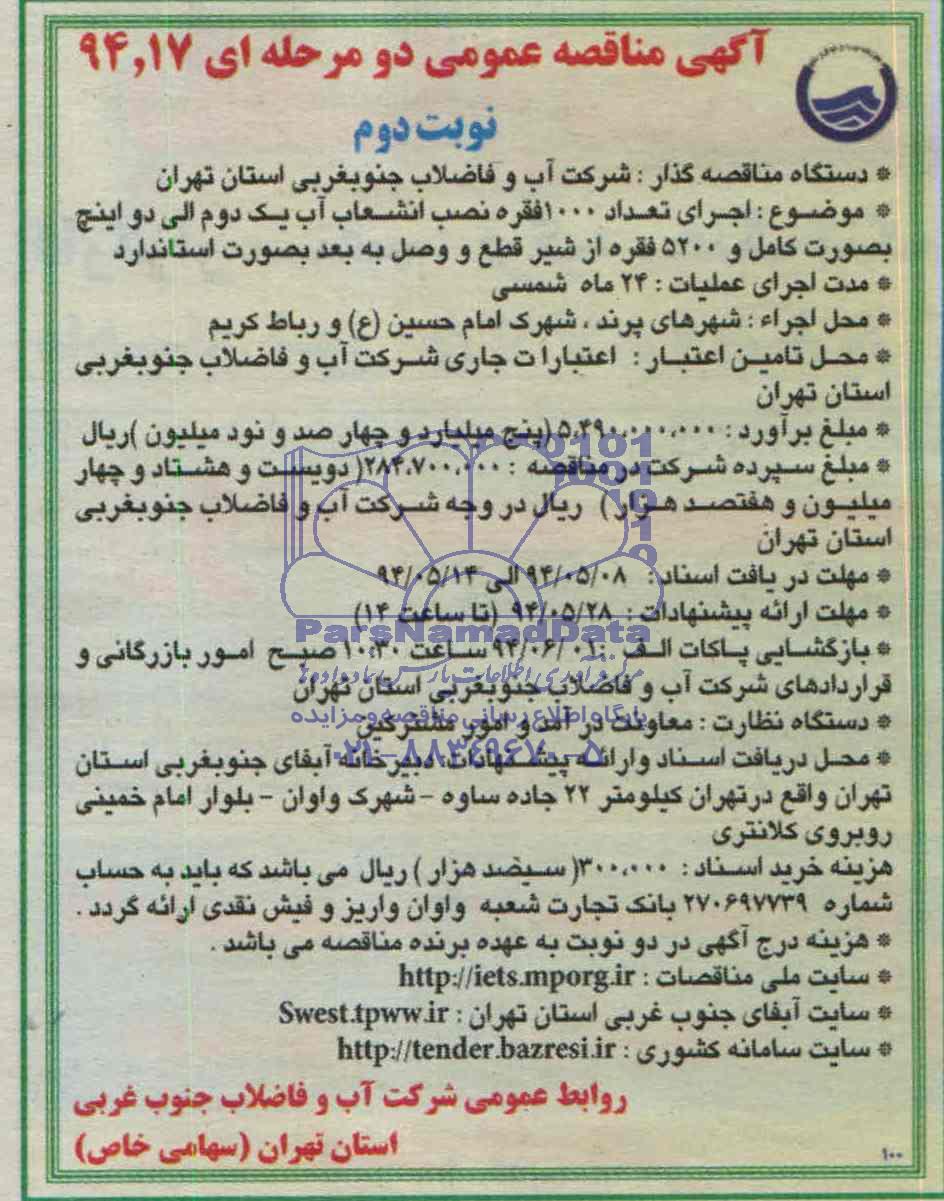 آگهی مناقصه عمومی دو مرحله ای ۹۴,۱۷
نوبت دوم
* دستگاه مناقصه گذار : شرکت آب و فاضلاب جنوبغربی استان تهران
* موضوع : اجرای تعداد ۱۰۰۰فقره نصب انشعاب آب یک دوم الی دو اینچ
بصورت کامل و ۵۲۰۰ فقره از شیر قطع و وصل به بعد بصورت استاندارد
* مدت اجرای عملیات : ۲۴ ماه شمسی
* محل اجراء : شهرهای پرند ، شهرک امام حسین (ع) و رباط کریم
* محل تامین اعتبار : اعتبارا ت جاری شرکت آب و فاضلاب جنوبغربی
استان تهران
* مبلغ برآورد : ۵،۴۹۰،۰۰۰،۰۰۰ (پنج میلیارد و چهار صد و نود میلیون )ریال
* مبلغ سپرده شرکت در مناقصه : ۲۸۴،۷۰۰،۰۰۰( دویست و هشتاد و چهار
میلیون و هفتصد هزار ) ریال در وجه شرکت آب و فاضلاب جنوبغربی
استان تهران
* مهلت در یافت اسناد : ۹۴/۰۵/۰۸ الی ۹۴/۰۵/۱۴
* مهلت ارائه پیشنهادات : ۹۴/۰۵/۲۸ (تا ساعت ۱۴)
ParsNamadData
* بازگشایی پاکات الف : ۹۴/۰۶/۰۱ ساعت ۱۰:۳۰ صبح امور بازرگانی و
قراردادهای شرکت آب و فاضلاب جنوبغربی استان تهران
پایگاه اطلاع رسانی مناقصه و مزایده
* دستگاه نظارت : معاونت در آمد و امور مشترکین
۰۲۱-۸۸۳۴۹۶۷۰-۵
* محل دریافت اسناد وارائه پیشنهادات: دبیرخانه آبفای جنوبغربی استان
تهران واقع درتهران کیلومتر ۲۲ جاده ساوه - شهرک واوان - بلوار امام خمینی
روبروی کلانتری
هزینه خرید اسناد : ۳۰۰،۰۰۰( سیضد هزار ) ریال می باشد که باید به حساب
شماره ۲۷۰۶۹۷۷۳۹ بانک تجارت شعبه واوان واریز و فیش نقدی ارائه گردد .
* هزینه درج آگهی در دو نوبت به عهده برنده مناقصه می باشد .
* سایت ملی مناقصات : http://iets.mporg.ir
* سایت آبفای جنوب غربی استان تهران : Swest.tpww.ir
* سایت سامانه کشوری : http://tender.bazresi.ir
روابط عمومی شرکت آب و فاضلاب جنوب غربی
استان تهران (سهامی خاص)
۱۰۰